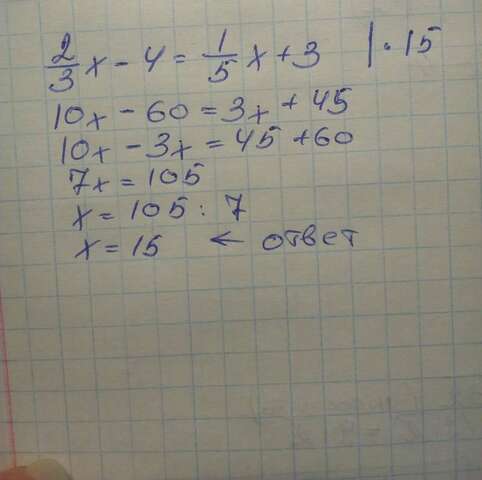 2/3 x - 4 = 1/5 x + 3 | · 15
10x - 60 = 3x + 45
10x - 3x = 45 + 60
7x = 105
x = 105 : 7
x = 15 ← ответ